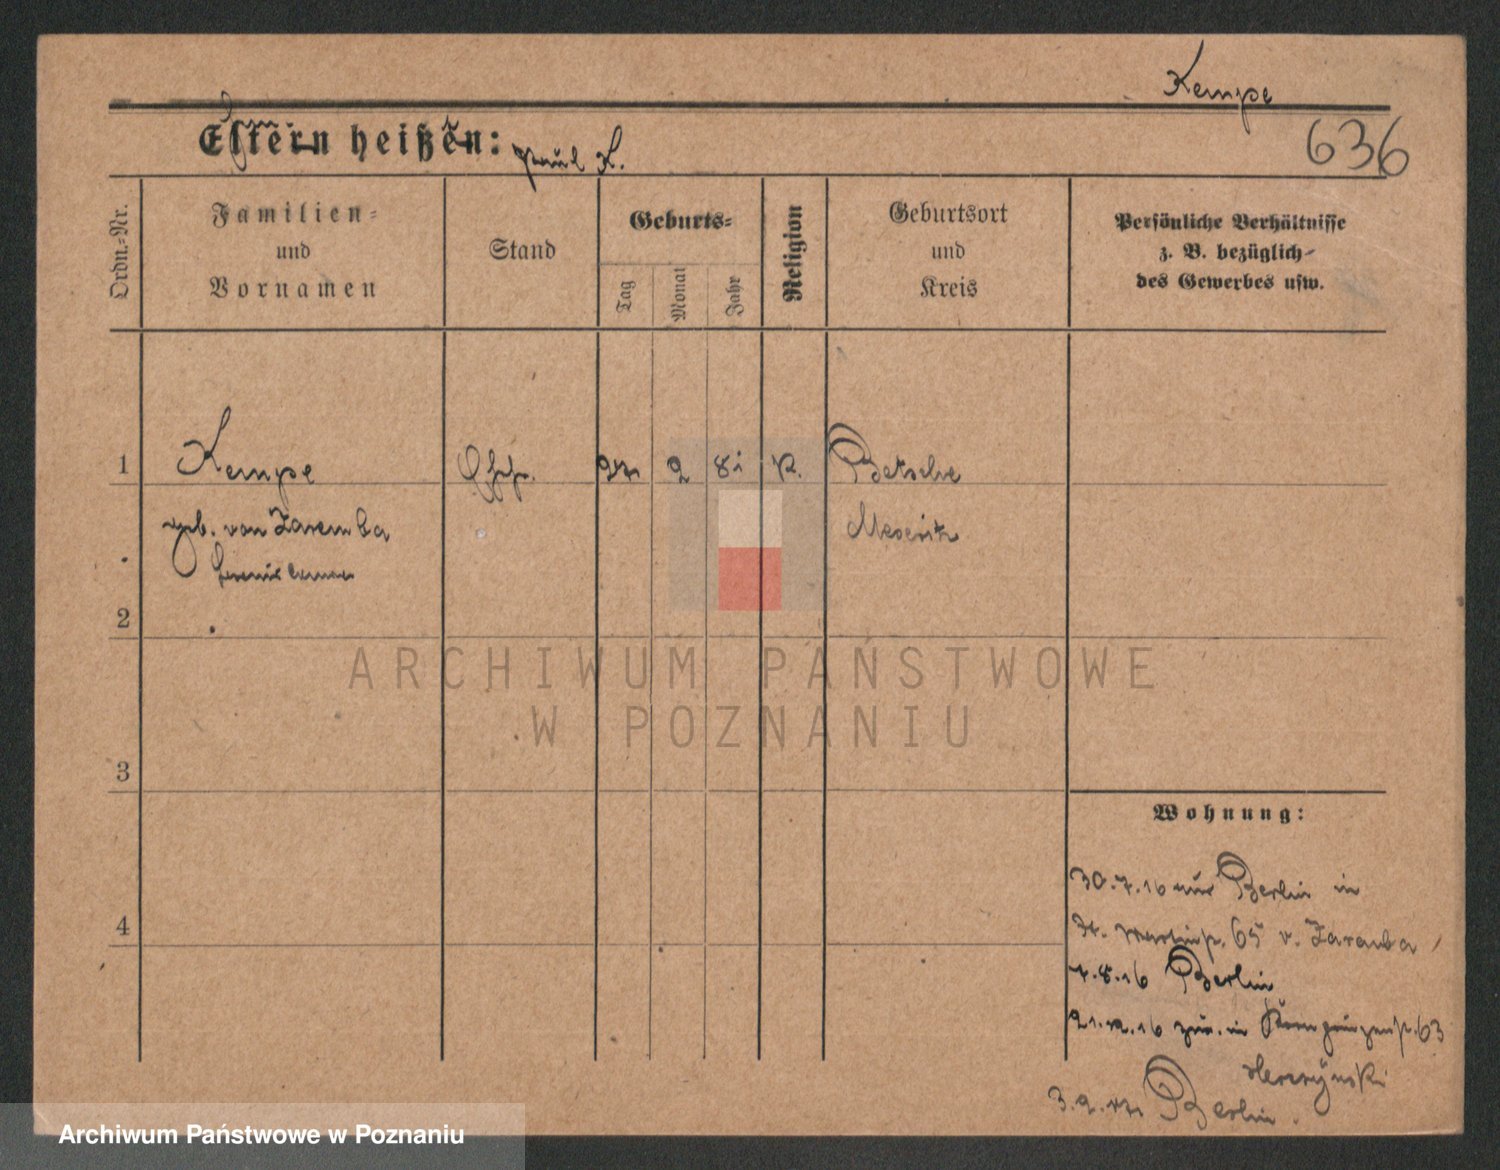 Kempe
Eltern heißen: Paul K.
636
Ordn.-Nr.
Familien-
und
Vornamen
Stand
Geburts-
Tag
Monat
Jahr
Religion
Geburtsort
und
Kreis
Persönliche Verhältnisse
z. B. bezüglich
des Gewerbes usw.
1
Kempe
2 81 K. Betsche
geb. von Zaremba
Meseritz
2
ARCHIWUM PAŃSTWOWE
W POZNANIU
3
Wohnung:
30.7.16 aus Berlin in
St. Martinstr. 65 v. Zaremba
4
7.8.16 Berlin
21.12.16 zur. in 63
3.2.17 Berlin.
Archiwum Państwowe w Poznaniu